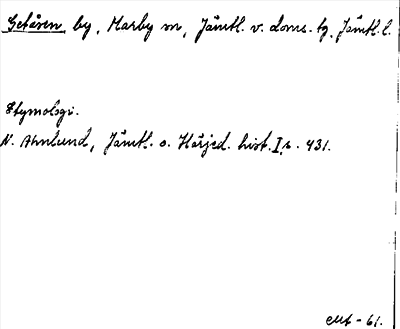 Getåsen, by, Marby sn, Jämtl. v. doms. tg, Jämtl. l.
Etymologi.
N. Ahnlund, Jämtl. o. Härjed. hist. I, s. 431.
-61.